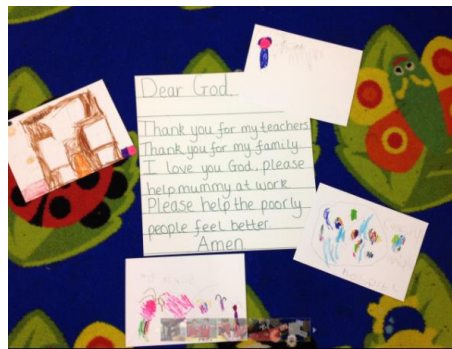 Dear God.
Thank you for my teachers
Thank you for my family
I love you God, please
help mummy at work
Please help the poorly
people feel better.
Amen